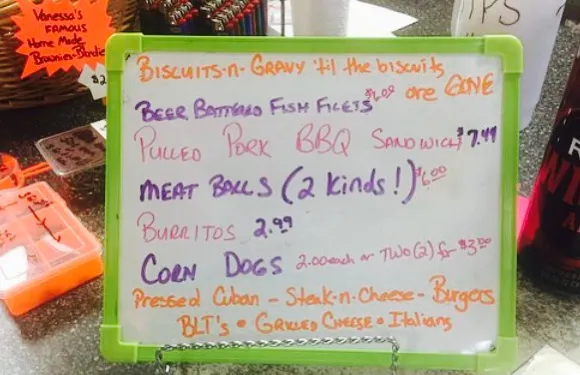 Vanessa's
FAMOUS
Home Made
Brownies-Blondies
$2
TIPS
BISCUITS-n-GRAVY 'til the biscuits
are GONE
BEER BATTERED FISH FILETS $6.00
PULLED PORK BBQ SANDWICH $7.49
MEAT BALLS (2 kinds!) $6.00
BURRITOS 2.99
CORN DOGS 2.00 each or TWO (2) for $3.00
Pressed Cuban - Steak-n-Cheese - Burgers
BLT's • GRILLED CHEESE • Italians